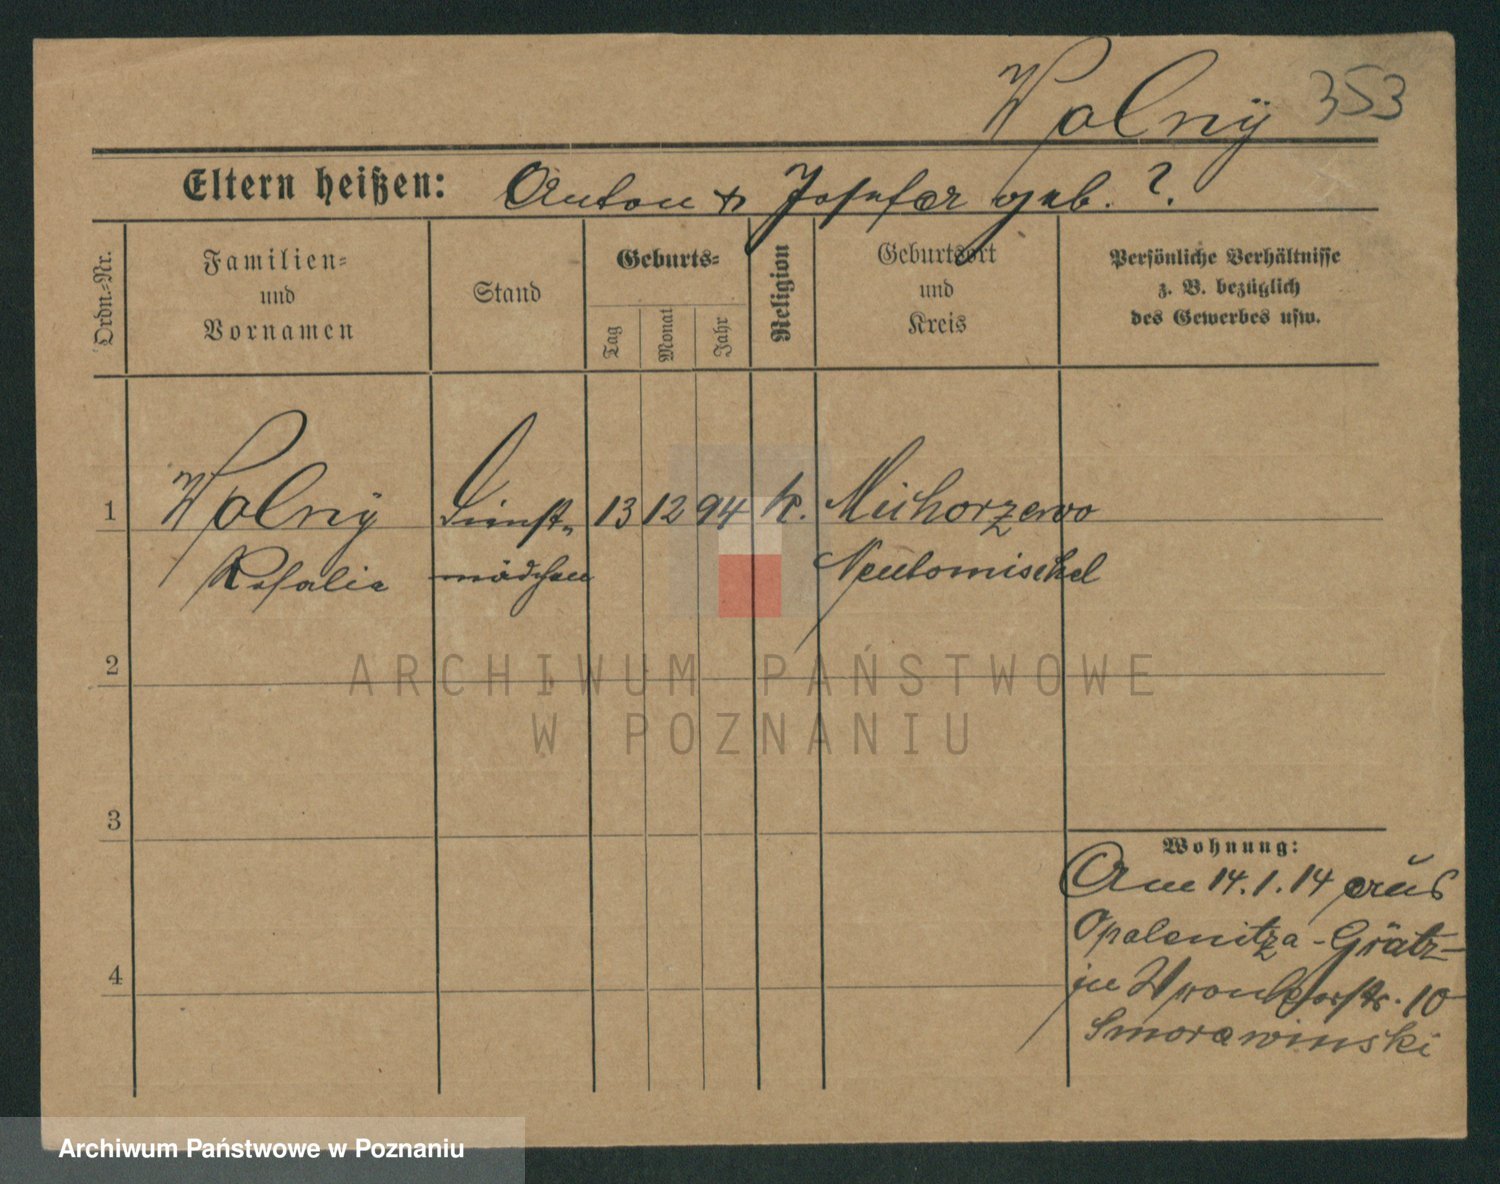 Wolny 353
Eltern heißen: Anton & Josefa geb. ?.
Ordn.-Nr.
Familien-
und
Vornamen
Stand
Geburts-
Tag
Monat
Jahr
Religion
Geburtsort
und
Kreis
Persönliche Verhältnisse
z. B. bezüglich
des Gewerbes usw.
1 Wolny Dienst- 13 12 94 k. Michorzewo
Rosalie mädchen Neutomischel
2
ARCHIWUM PAŃSTWOWE
W POZNANIU
3
Wohnung:
Am 14.1.14 aus
Opalenitza - Grätz-
in Wronkerstr. 10
Smorawinski
4
Archiwum Państwowe w Poznaniu